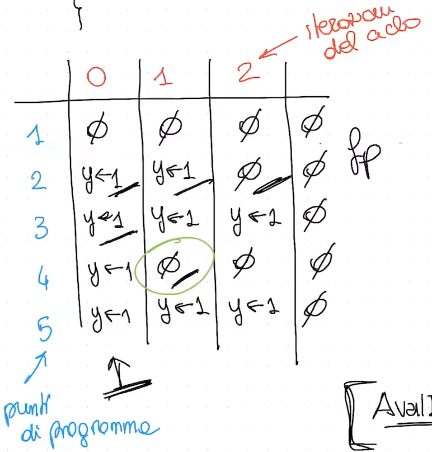 }
iterazioni
del ciclo
0 1 2
1 ∅ ∅ ∅ ∅
2 y←1 y←1 ∅ ∅ fp
3 y←1 y←1 y←1 ∅
4 y←1 ∅ ∅ ∅
5 y←1 y←1 y←1 ∅
punti
di programma
[ Avail